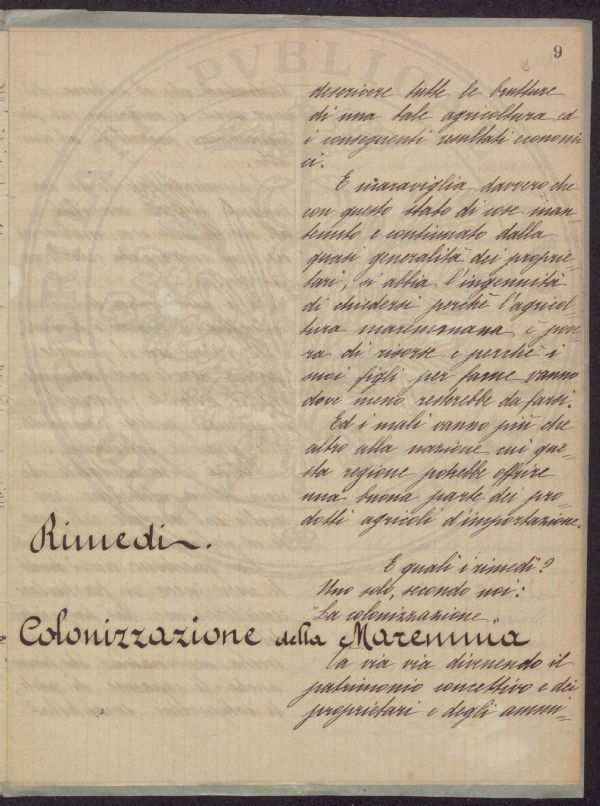 9
descrivere tutte le brutture
di una tale agricoltura ed
i conseguenti resultati economi
ci.
E maraviglia davvero che
con questo stato di cose man-
tenuto e continuato dalla
quasi generalità dei proprie-
tari, si abbia l'ingenuità
di chiedersi perchè l'agricol-
tura maremmana è pove-
ra di risorse e perchè i
suoi figli per fame vanno
dove meno resterebbe da farsi.
Ed i mali vanno più che
altro alla nazione cui que-
sta regione potrebbe offrire
una buona parte dei pro-
dotti agricoli d'importazione.
Rimedi.
E quali i rimedi?
Uno solo, secondo noi:
"La colonizzazione"
Colonizzazione della Maremma
Ta via via divenendo il
patrimonio concettivo e dei
proprietari e degli ammi-